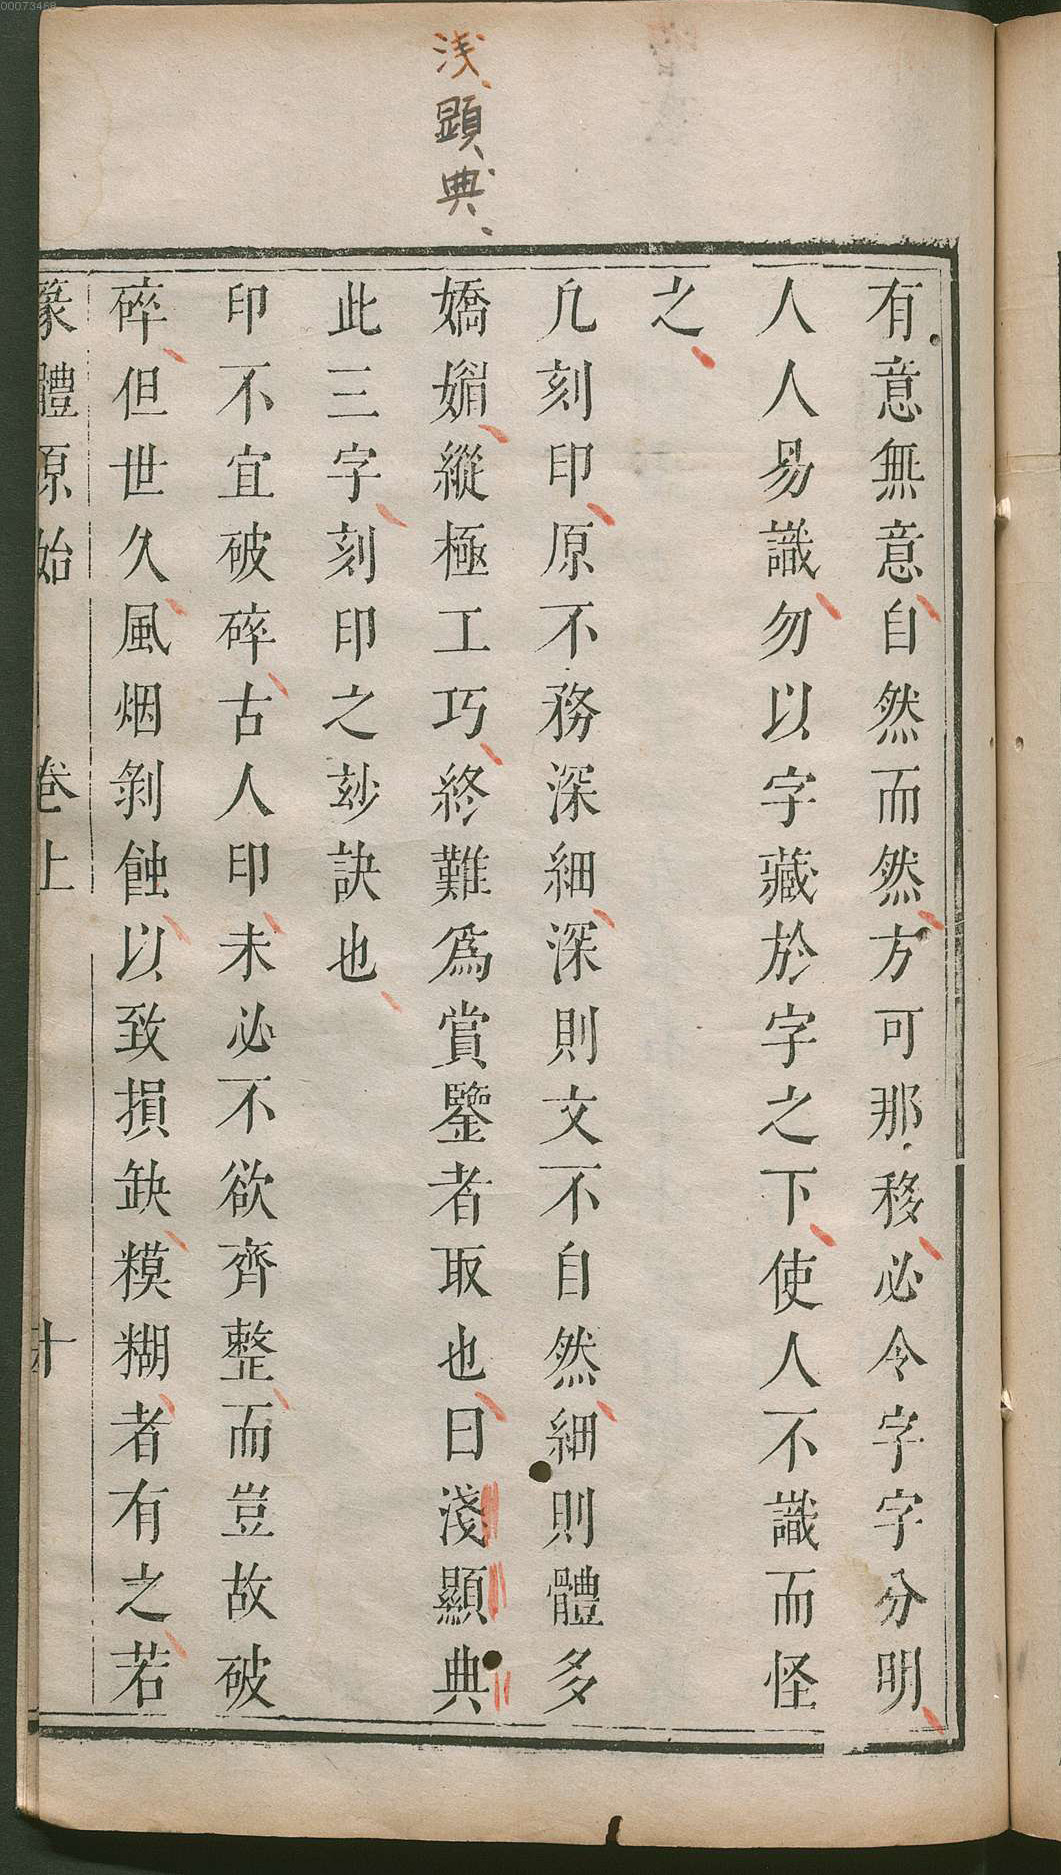 00073468
浅顕典
有意無意自然而然方可那移必令字字分明
人人易識勿以字藏於字之下使人不識而怪
之
凢刻印原不務深細深則文不自然細則體多
嬌媚縱極工巧終難爲賞鑒者取也曰淺顯典
此三字刻印之玅訣也
印不宜破碎古人印未必不欲齊整而豈故破
碎但世久風烟剝蝕以致損缺糢糊者有之若
篆體原始 卷上 十